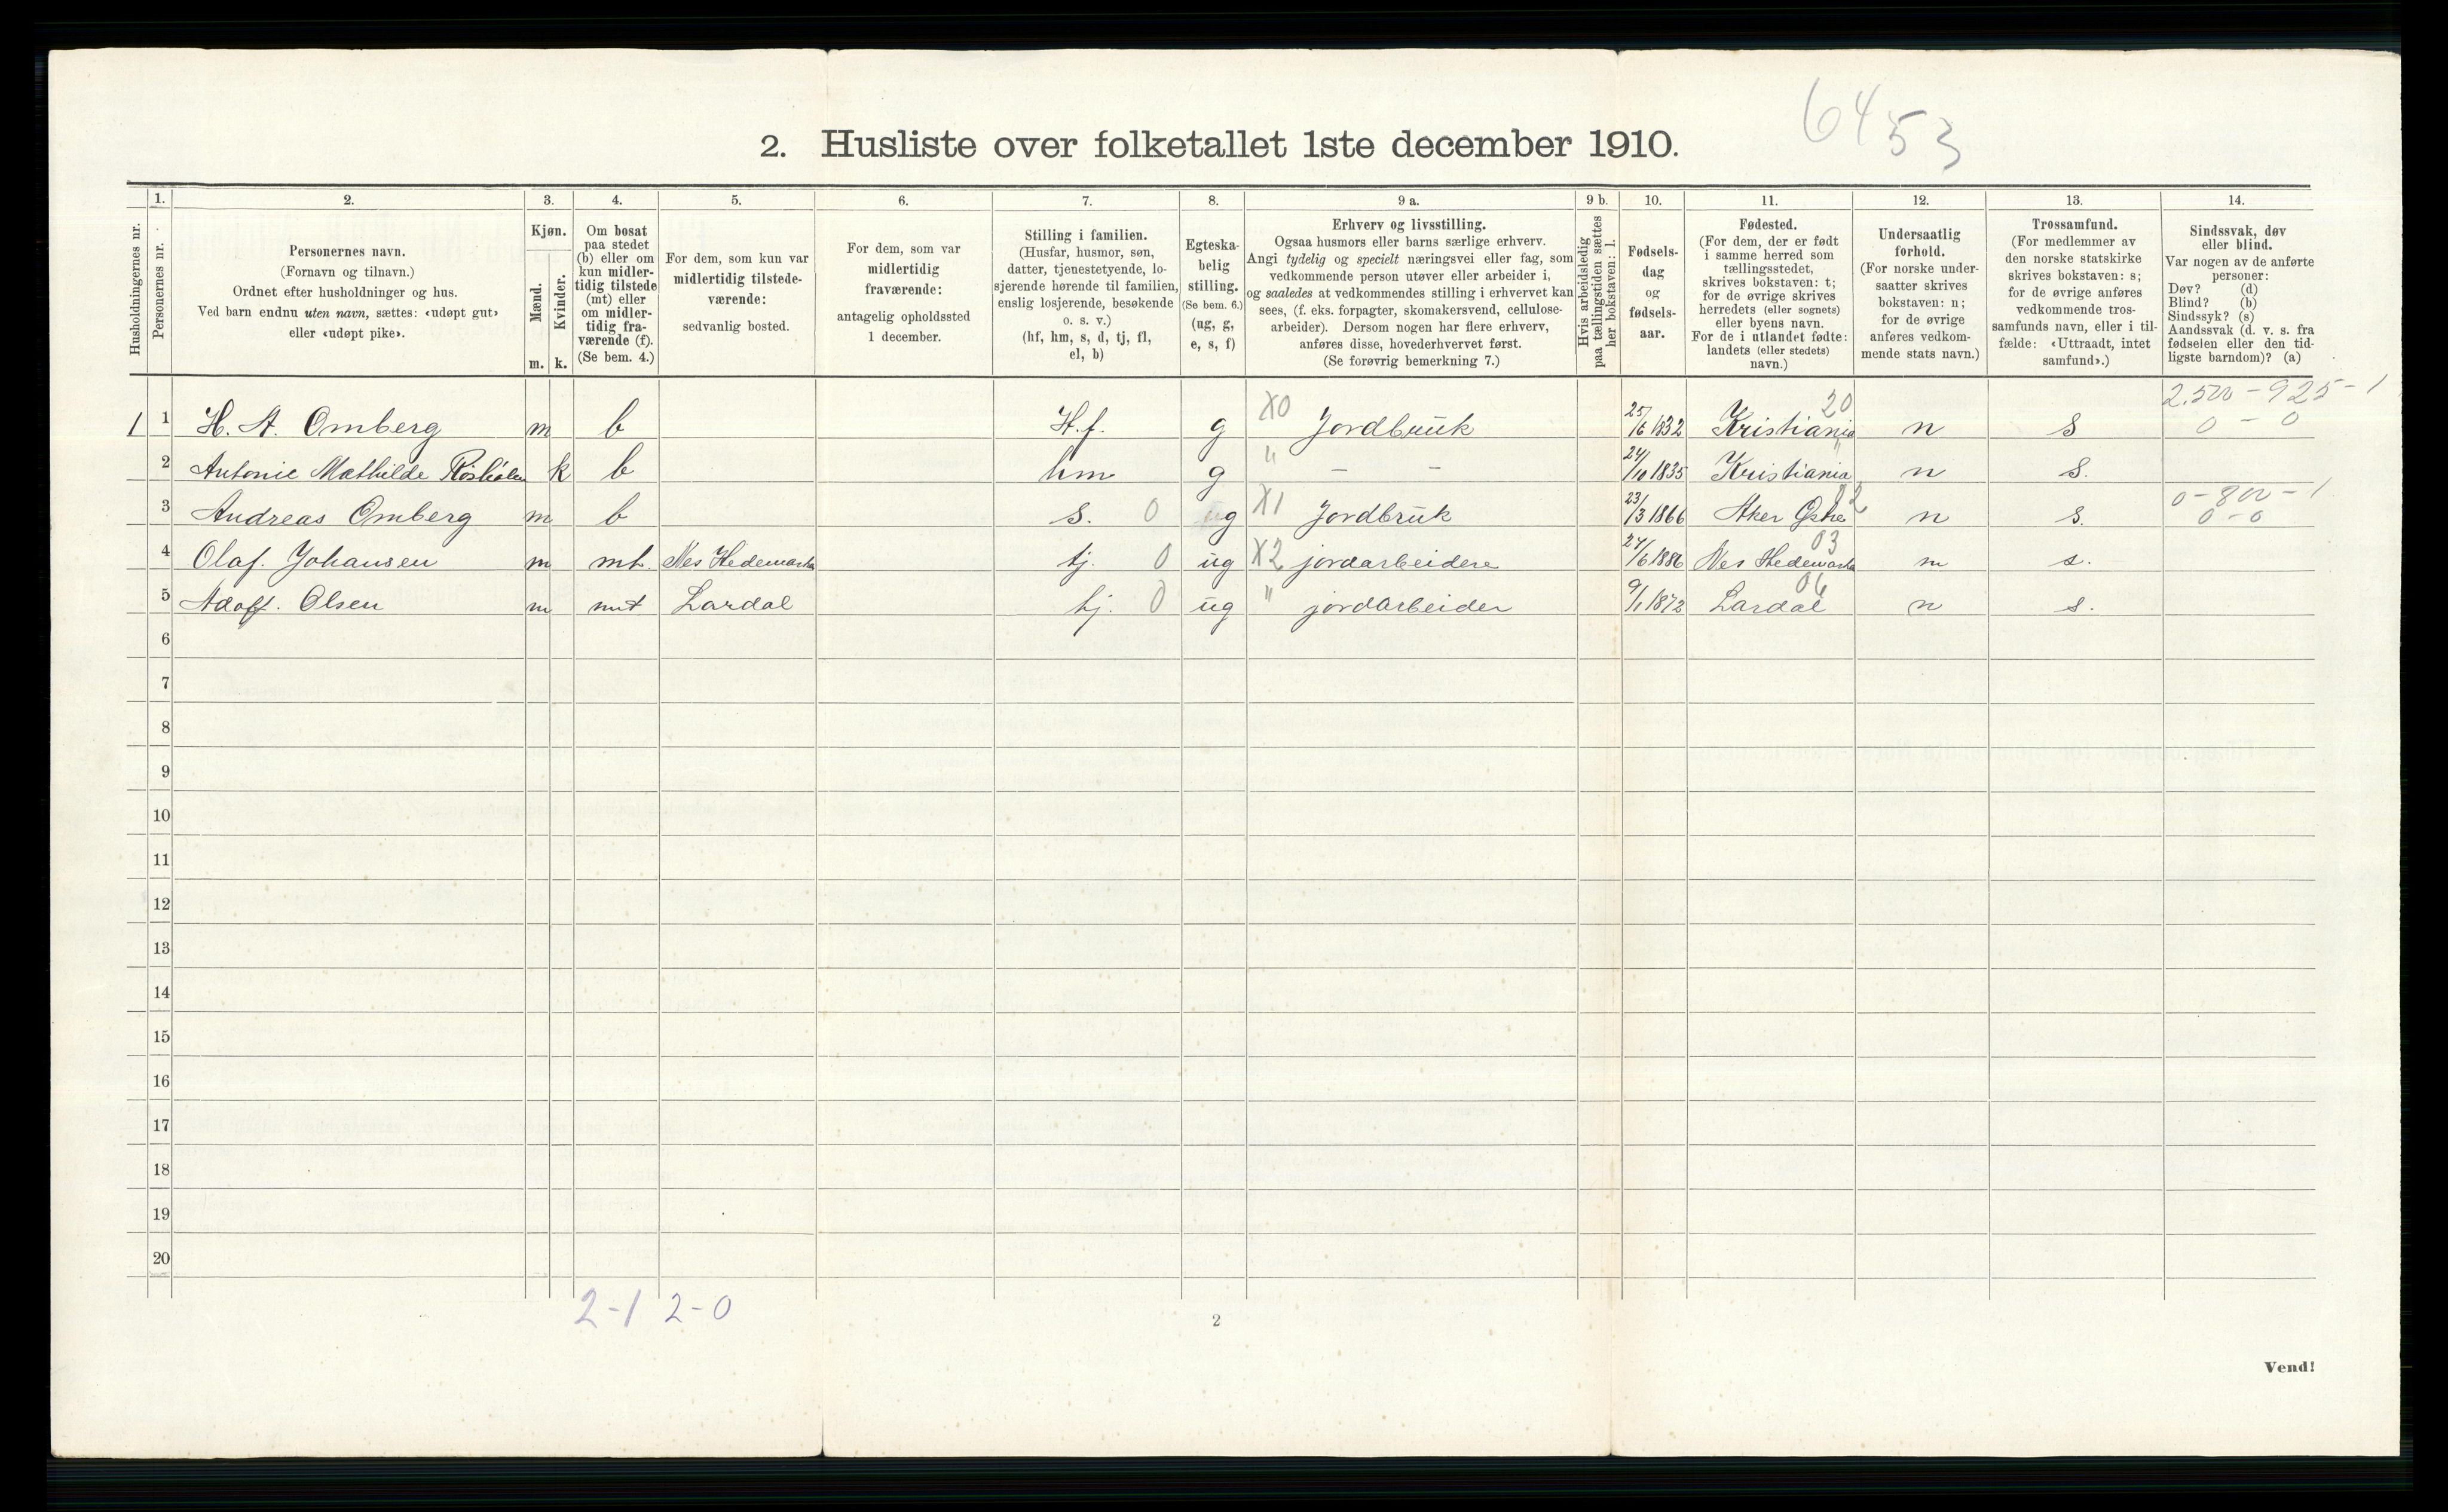 6453
2. Husliste over folketallet 1ste december 1910.
Husholdningernes nr.
1. Personernes nr.
2. Personernes navn. (Fornavn og tilnavn.) Ordnet efter husholdninger og hus. Ved barn endnu uten navn, sættes: «udøpt gut» eller «udøpt pike».
3. Kjøn. Mænd. m. Kvinder. k.
4. Om bosat paa stedet (b) eller om kun midlertidig tilstede (mt) eller om midlertidig fraværende (f). (Se bem. 4.)
5. For dem, som kun var midlertidig tilstedeværende: sedvanlig bosted.
6. For dem, som var midlertidig fraværende: antagelig opholdssted 1 december.
7. Stilling i familien. (Husfar, husmor, søn, datter, tjenestetyende, losjerende hørende til familien, enslig losjerende, besøkende o. s. v.) (hf, hm, s, d, tj, fl, el, b)
8. Egteskabelig stilling. (Se bem. 6.) (ug, g, e, s, f)
9 a. Erhverv og livsstilling. Ogsaa husmors eller barns særlige erhverv. Angi tydelig og specielt næringsvei eller fag, som vedkommende person utøver eller arbeider i, og saaledes at vedkommendes stilling i erhvervet kan sees, (f. eks. forpagter, skomakersvend, cellulosearbeider). Dersom nogen har flere erhverv, anføres disse, hovederhvervet først. (Se forøvrig bemerkning 7.)
9 b. Hvis arbeidsledig paa tællingstiden sættes her bokstaven: l.
10. Fødselsdag og fødselsaar.
11. Fødested. (For dem, der er født i samme herred som tællingsstedet, skrives bokstaven: t; for de øvrige skrives herredets (eller sognets) eller byens navn. For de i utlandet fødte: landets (eller stedets) navn.)
12. Undersaatlig forhold. (For norske undersaatter skrives bokstaven: n; for de øvrige anføres vedkommende stats navn.)
13. Trossamfund. (For medlemmer av den norske statskirke skrives bokstaven: s; for de øvrige anføres vedkommende trossamfunds navn, eller i tilfælde: «Uttraadt, intet samfund».)
14. Sindssvak, døv eller blind. Var nogen av de anførte personer: Døv? (d) Blind? (b) Sindssyk? (s) Aandssvak (d. v. s. fra fødselen eller den tidligste barndom)? (a)
2.500-925-1
1 1 H. A. Omberg m b H.f. g X0 Jordbruk 25/6 1832 20 Kristiania n s 0-0
2 Antonie Mathilde k b hm g " - - 24/10 1835 " Kristiania n s.
0-800-1
3 Andreas Omberg m b s. 0 ug X1 Jordbruk 23/3 1866 Aker n s. 0-0
4 Olaf. Johansen m mt. Nes Hedemarken tj. 0 ug X2 jordarbeidere 24/6 1886 03 Nes Hedemarken n s.
5 Adolf. Olsen m mt Lardal tj. 0 ug " jordarbeider 9/1 1872 06 Lardal n s.
6
7
8
9
10
11
12
13
14
15
16
17
18
19
20
2-1 2-0
2
Vend!